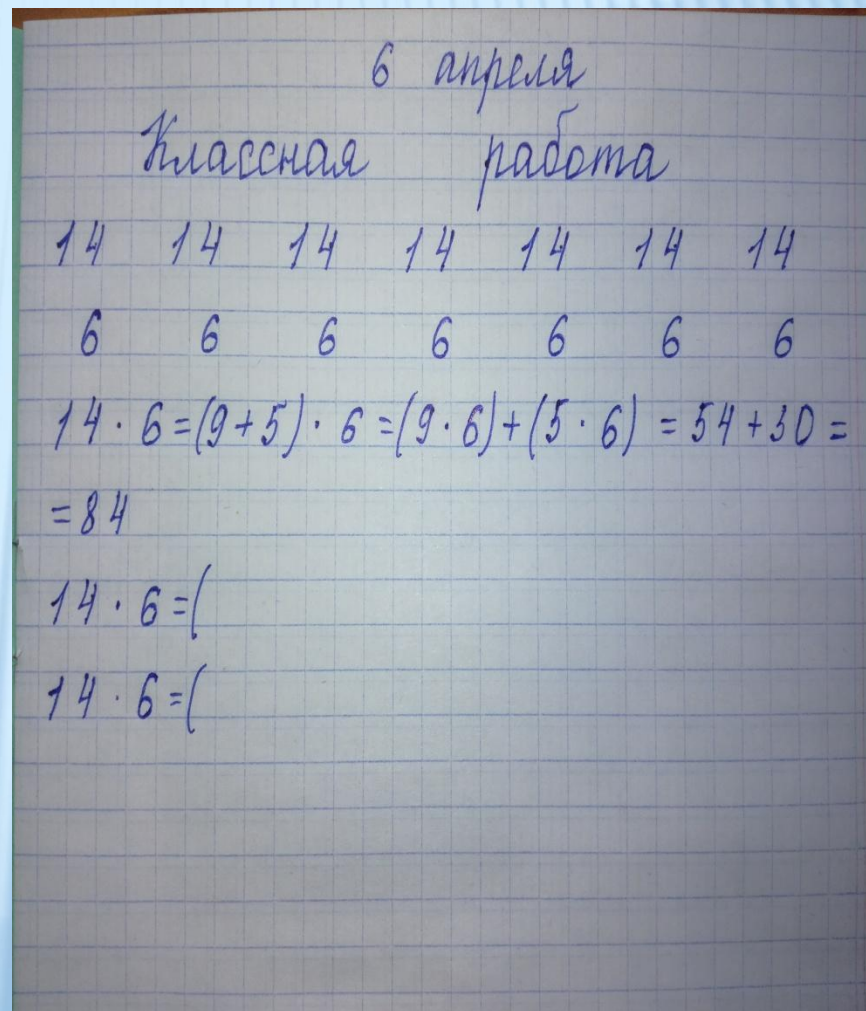 6 апреля
Классная работа
14 14 14 14 14 14 14
6 6 6 6 6 6 6
14 · 6 = (9 + 5) · 6 = (9 · 6) + (5 · 6) = 54 + 30 =
= 84
14 · 6 = (
14 · 6 = (